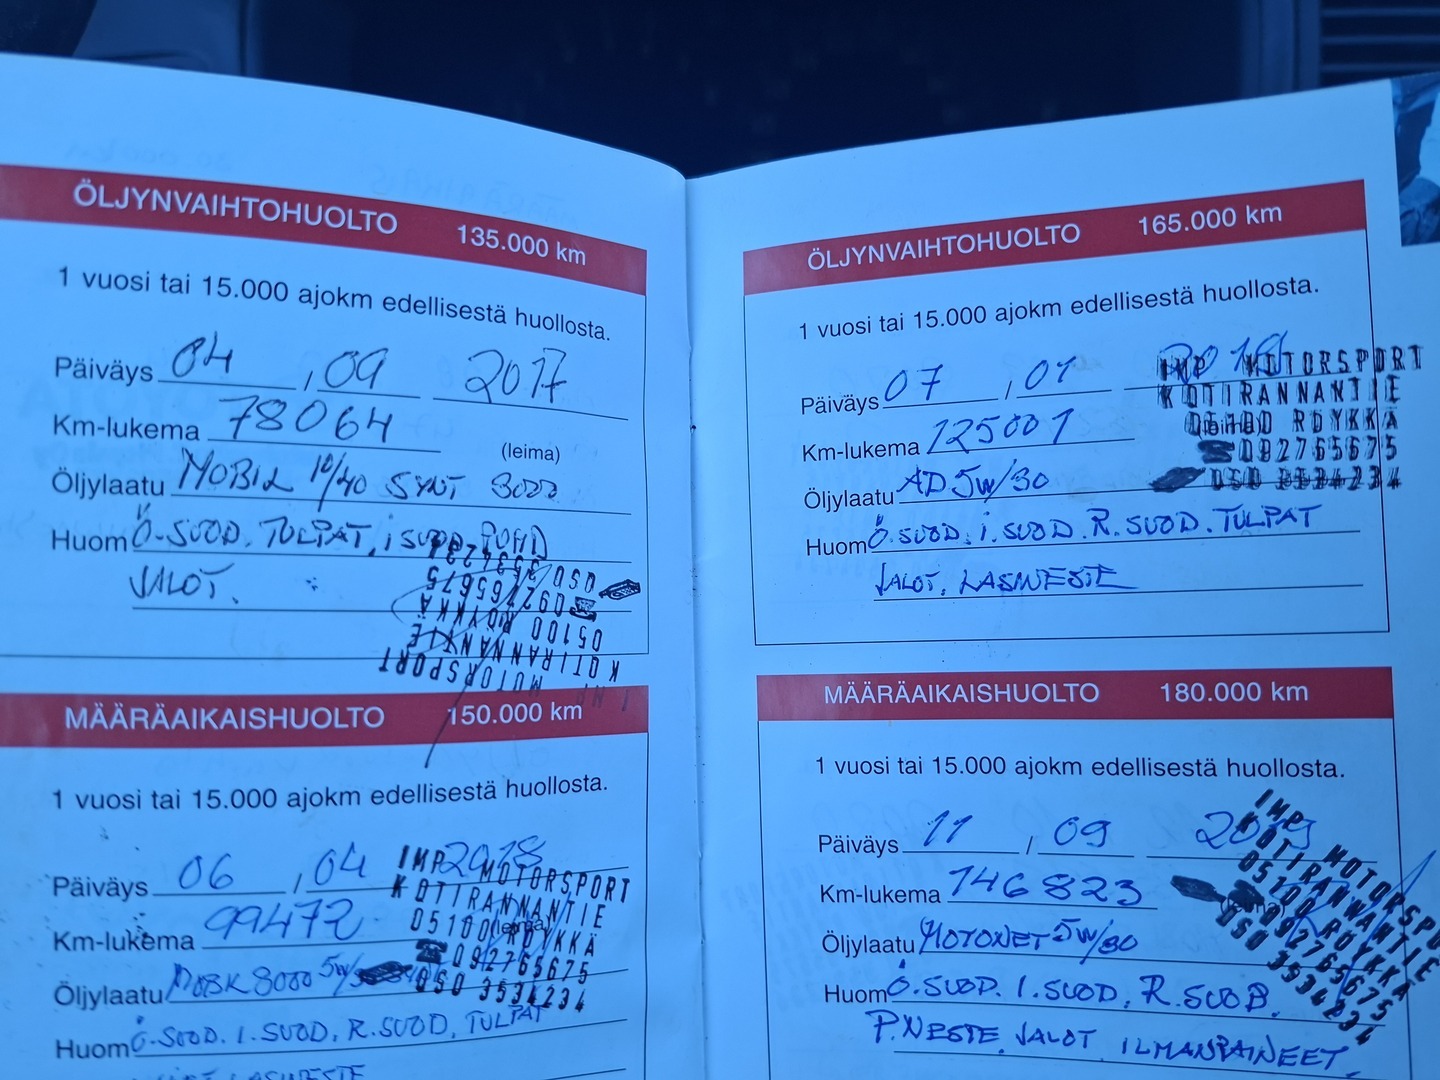 ÖLJYNVAIHTOHUOLTO 135.000 km
1 vuosi tai 15.000 ajokm edellisestä huollosta.
Päiväys 04 , 09 2017
Km-lukema 78064
(leima)
Öljylaatu MOBIL 10/40 SYNT 3000
Huom Ö-SUOD. TULPAT, i SUOD.
VALOT.
050 3534234
092765675
05100 RÖYKKÄ
KOTIRANNANTIE
IMP MOTORSPORT
MÄÄRÄAIKAISHUOLTO 150.000 km
1 vuosi tai 15.000 ajokm edellisestä huollosta.
Päiväys 06 , 04 2018
IMP MOTORSPORT
KOTIRANNANTIE
Km-lukema 99472
(leima)
05100 RÖYKKÄ
092765675
Öljylaatu 8000 5w/
050 3534234
Huom Ö-SUOD. I.SUOD, R.SUOD, TULPAT
ÖLJYNVAIHTOHUOLTO 165.000 km
1 vuosi tai 15.000 ajokm edellisestä huollosta.
Päiväys 07 , 01 2019
IMP MOTORSPORT
KOTIRANNANTIE
Km-lukema 125001
(leima)
05100 RÖYKKÄ
092765675
Öljylaatu AD 5w/30
050 3534234
Huom Ö.SUOD. i.SUOD. R.SUOD. TULPAT
VALOT. LASINESTE
MÄÄRÄAIKAISHUOLTO 180.000 km
1 vuosi tai 15.000 ajokm edellisestä huollosta.
Päiväys 11 / 09 2019
Km-lukema 146823
(leima)
IMP MOTORSPO
KOTIRANNANTIE
05100 RÖYKKÄ
092765675
050 3534234
Öljylaatu MOTONET 5w/30
Huom Ö.SUOD. I.SUOD, R.SUOD.
P.NESTE, VALOT, ILMANPAINEET,